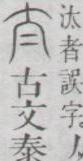 汰者誤字
夳古文泰